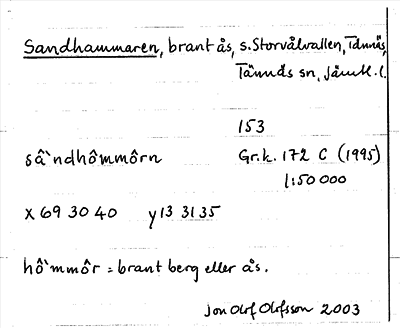 Sandhammaren, brant ås, s. Storvålvallen, Tännäs,
Tännäs sn, Jämtl. l.
153
sâ`ndhômmôrn Gr.k. 172 C (1995)
1:50 000
X 69 30 40 y 13 31 35
hô`mmôr = brant berg eller ås.
Jon Olof Olofsson 2003